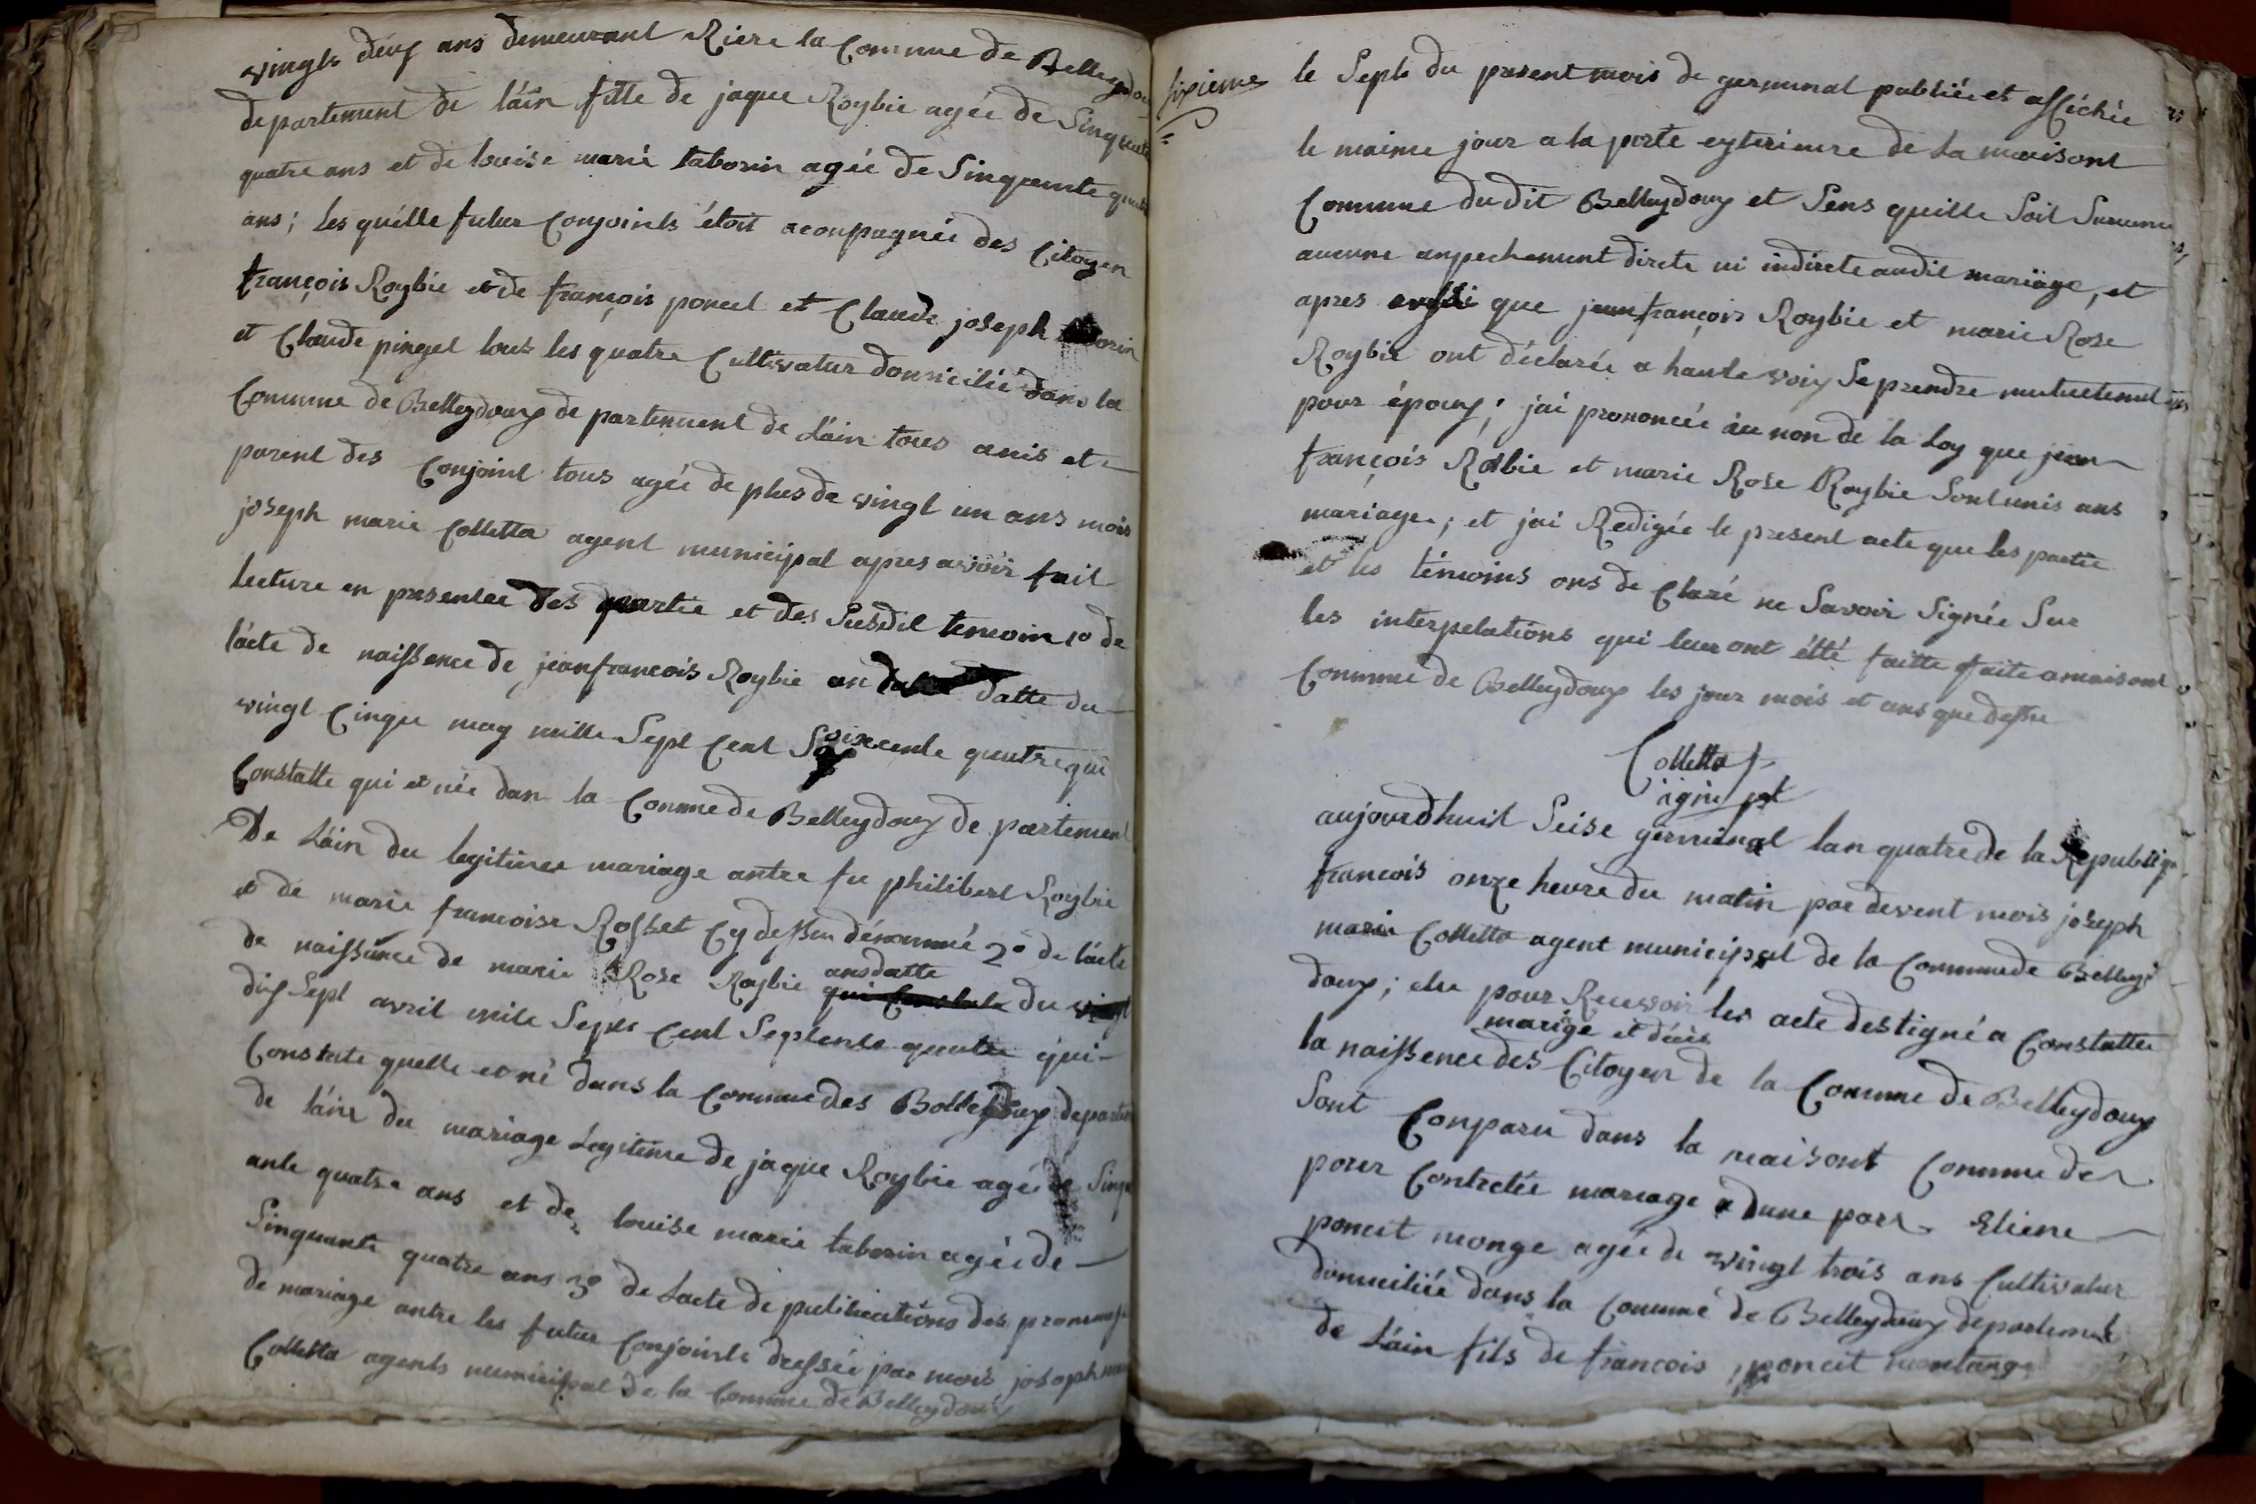 vingts deux ans demeurant Riere la Commune de Belleydou
departement de láin fille de jaque Roybie agée de Sinquante
quatre ans et de louise marie taborin agée de Sinquante quatre
ans; les quélle futur Conjoints étoit acompagnée des Citoyen
françois Roybie et de françois poncet et Claude joseph
et Claude pinget tout les quatre Cultivatur domicilié dans la
Commune de Belleydoux de partement de láin tous amis et
parent des Conjoint tous agée de plus de vingt un ans mois
joseph marie Colletta agent municipal apres avoir fait
lecture en presentee des partie et des Susdit temoin 1o de
lácte de naissence de jeanfrancois Roybie an datte du
vingt Cinque may mille Sept Cent Soixcente quatre qui
Constatte qui et née dan la Commune de Belleydoux de partement
De láin du legitimee mariage antre fu philibert Roybie
et de marie francoise Rosset Cy dessu dénommé 2o de lácte
de naissance de marie Rose Roybie ansdatte du
dix Sept avril mile Septs Cent Septente quatre qui
Constate quelle et né dans la Commune des Belleydoux departem
de láin du mariage Legitime de jaque Roybie agée Sinqu
ante quatre ans et de louise marie taborin agée de
Sinquante quatre ans 3o de Lacte de publications des promesse
de mariage antre les futur Conjoints dressée par mois joseph mar
Colletta agents municipal de la Commune de Belleydoux
Sixieme
le Septs du present mois de germinal publiée et afféchée
le maime jour a la porte exterieure de la maisont
Commune du dit Belleydoux et Sens quille Soit Survenu
aucune anpechement direte ni indirete audit mariäge, et
apres que jeanfrançois Roybie et marie Rose
Roybie ont déclarée a haute voix Se prendre mutuelemnt
pour époux; jai prononcée au non de la Loy que jean
françois Roibie et marie Rose Roybie Sont unis ans
mariage; et jai Redigée le present acte que les partie
et les témoins ons de Claré ne Savoir Signée Sur
les interpelations qui leur ont étté faitte faite a maisont
Commune de Belleydoux les jour mois et ans que dessu
Colletta
aujourdhuit Seise germinal lan quatre de la Republiqu
francois onze heure du matin par devent mois joseph
marie Colletta agent municipal de la Commune de Belley
doux; elu pour Recevoir les acte destigné a Constatter
marige et décès
la naissence des Citoyen de la Commune de Belleydoux
Sont Conparu dans la maisont Commune de
pour Contractée mariage a dune part Etiene
poncet monge agée de vingt trois ans Cultivatur
domiciliée dans la Commune de Belleydoux departement
de láin fils de francois poncet montange